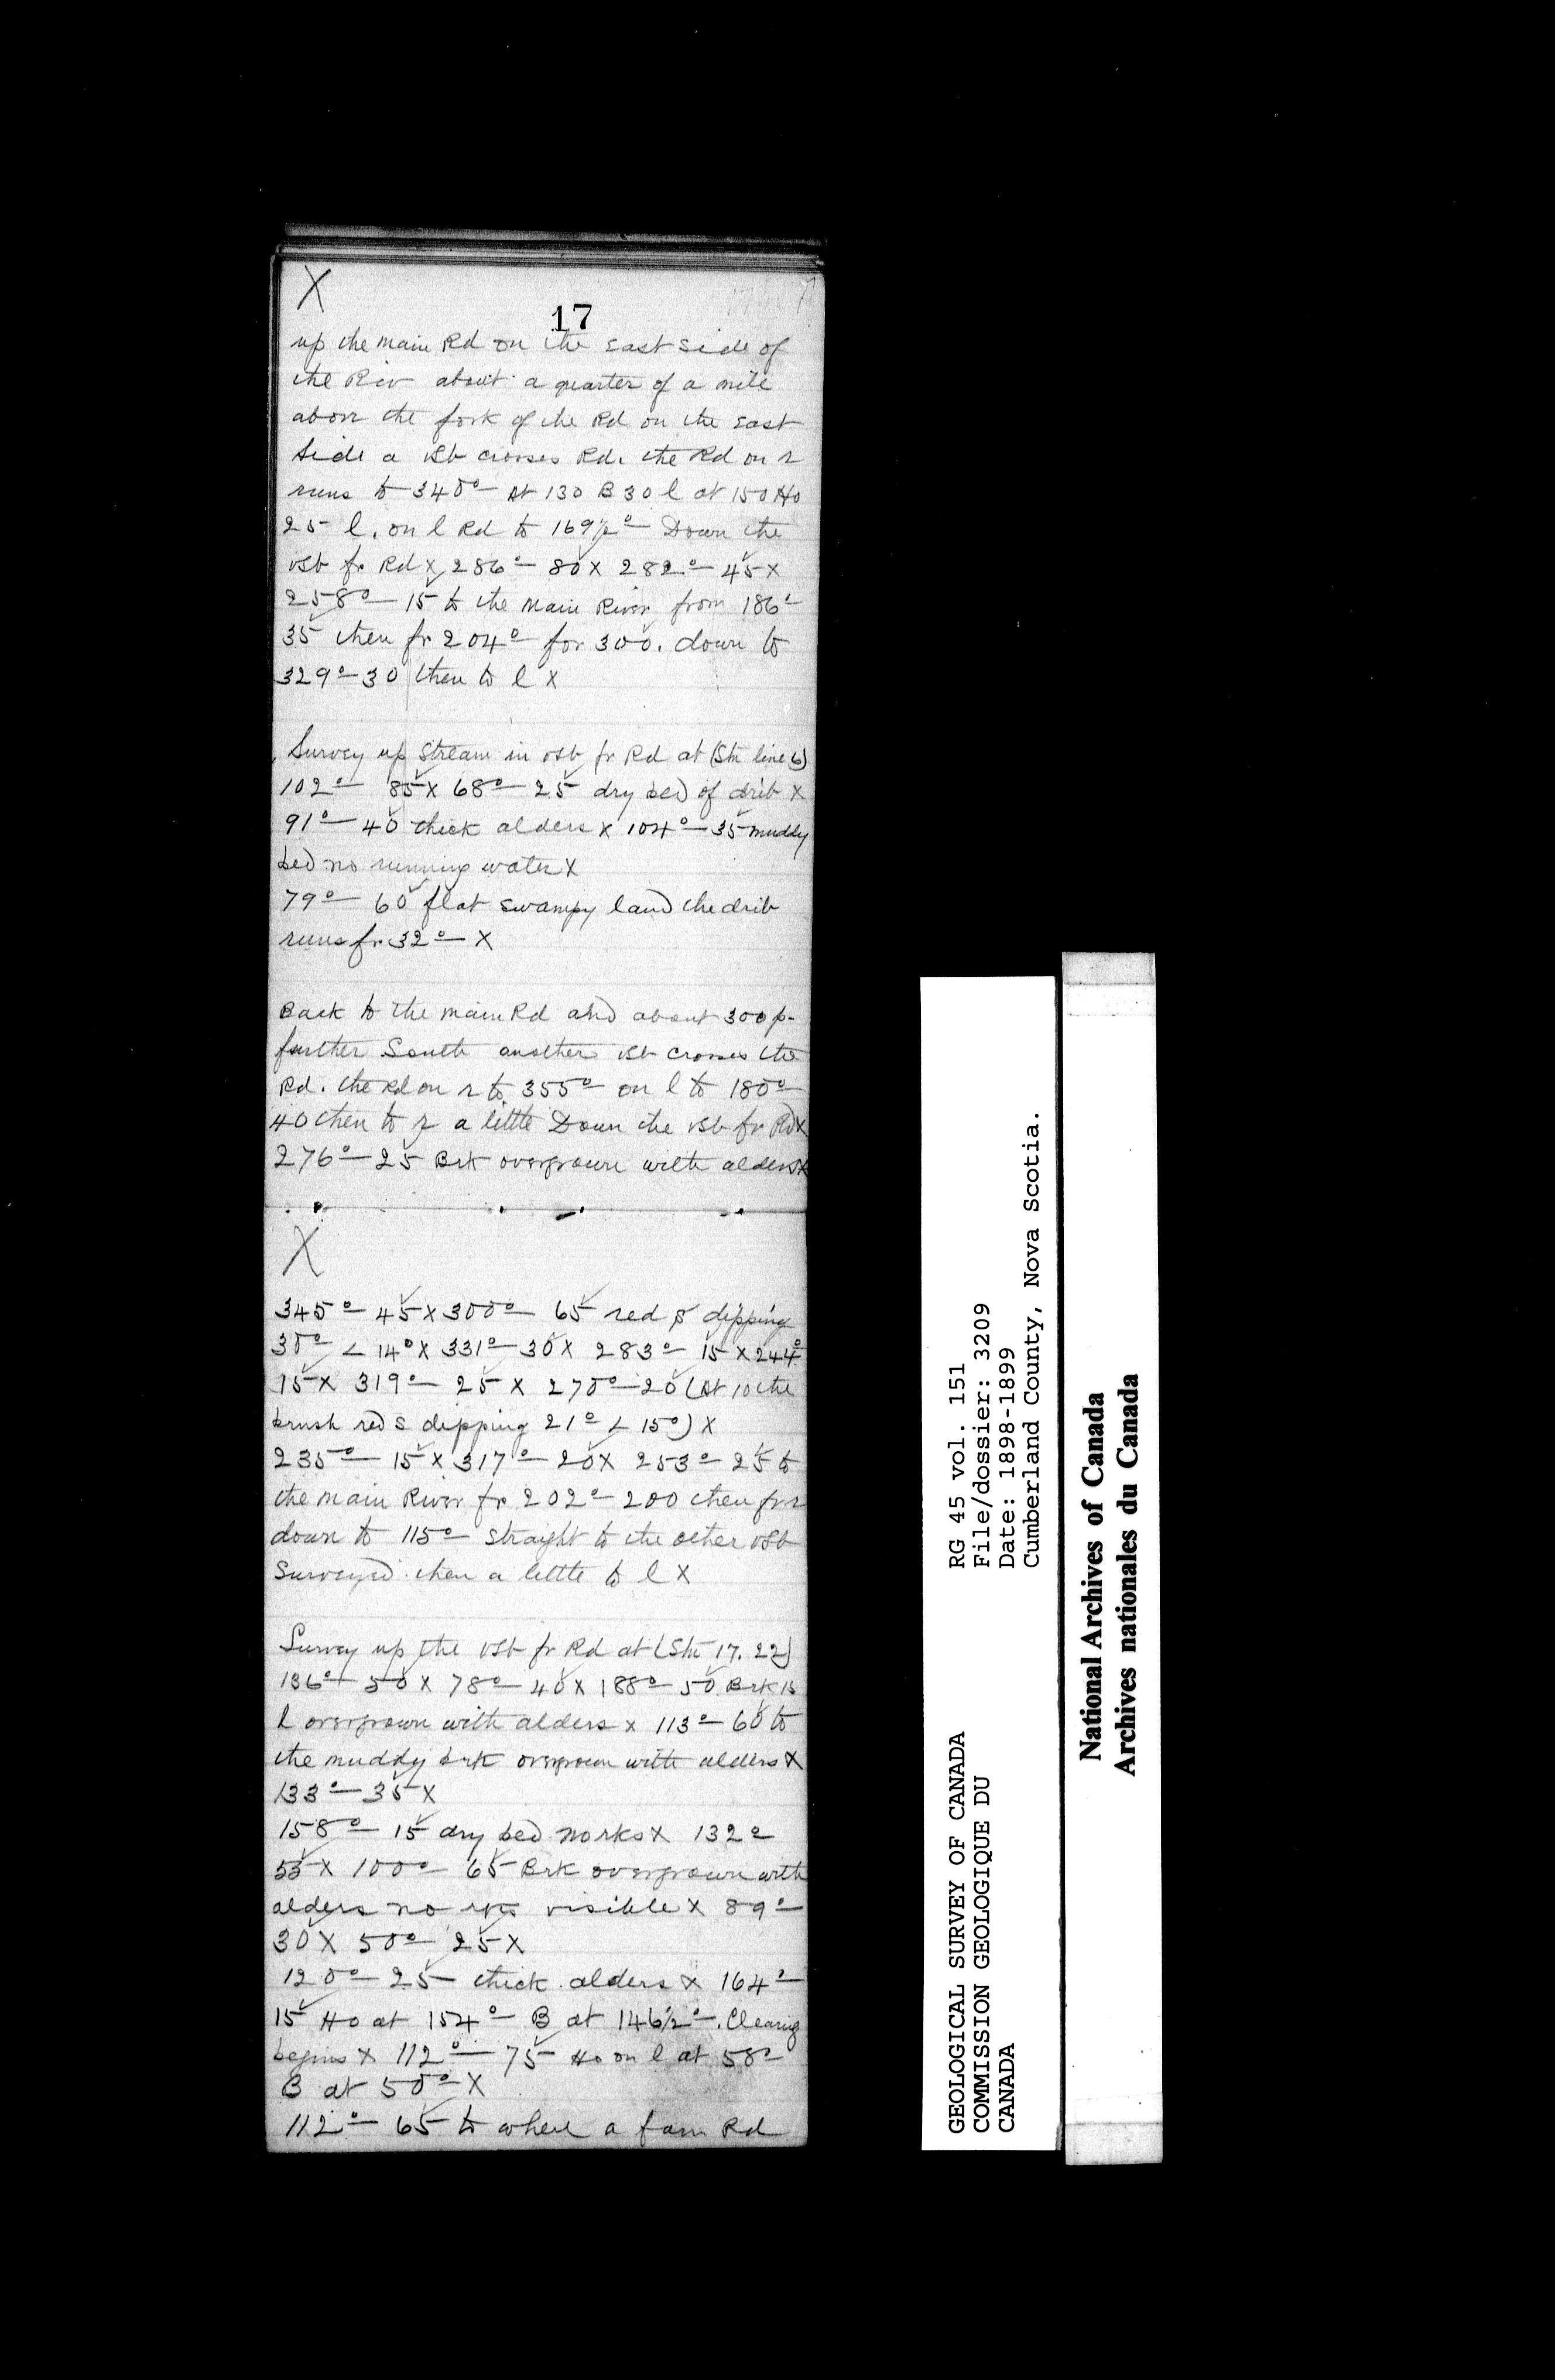 X
17
up the main Rd on the East side of
the Riv about a quarter of a mile
above the fork of the Rd on the East
Side a vsb crosses Rd. the Rd on r
runs to 340° — At 130 B 30 l at 150 Ho
25 l. on l Rd to 169½° — Down the
vsb fr Rd X 286° — 80 X 282° — 45 X
258° — 15 to the Main River from 186° —
35 then fr 204° — for 300. down to
329° — 30 then to l X
Survey up Stream in vsb fr Rd at (Stn line 6)
102° — 85 X 68° — 25 dry bed of drib X
91° — 40 thick alders X 104° — 35 muddy
bed no running water X
79° — 60 flat swampy land the drib
runs fr 32° — X
Back to the main Rd and about 300 p.
further South another vsb crosses the
Rd. the Rd on r to 355° — on l to 180° —
40 then to r a little Down the vsb fr Rd X
276° — 25 Brk overgrown with alders X
X
345° — 45 X 300° — 65 red S dipping
30° — < 14° X 331° — 30 X 283° — 15 X 244°
15 X 319° — 25 X 270° — 20 (At 10 the
brush red S dipping 21° — < 15°) X
235° — 15 X 317° — 20 X 253° — 25 to
the main River fr 202° — 200 then fr r
down to 115° — straight to the other vsb
Surveyed then a little to l X
Survey up the vsb fr Rd at (Stn 17. 22)
136° — 50 X 78° — 40 X 188° — 50 Brk 15
l overgrown with alders X 113° — 60 to
the muddy brk overgrown with alders X
133° — 35 X
158° — 15 dry bed no rks X 132° —
55 X 100° — 65 Brk overgrown with
alders no rks visible X 89° —
30 X 50° — 25 X
120° — 25 — thick alders X 164° —
15 Ho at 154° — B at 146½° —. Clearing
begins X 112° — 75 — Ho on l at 58° —
B at 50° — X
112° — 65 — to where a farm Rd
GEOLOGICAL SURVEY OF CANADA
COMMISSION GEOLOGIQUE DU
CANADA
RG 45 vol. 151
File/dossier: 3209
Date: 1898-1899
Cumberland County, Nova Scotia.
National Archives of Canada
Archives nationales du Canada